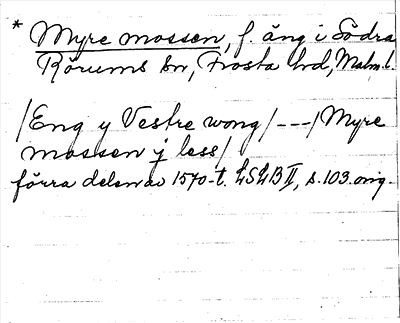 * Myre mossen, f. äng i Södra
Rörums sn, Frosta hd, Malm. l.
/Eng y Vestre wong/---/Myre
mossen j less/
förra delen av 1570-t. LSLB II, s. 103. orig.